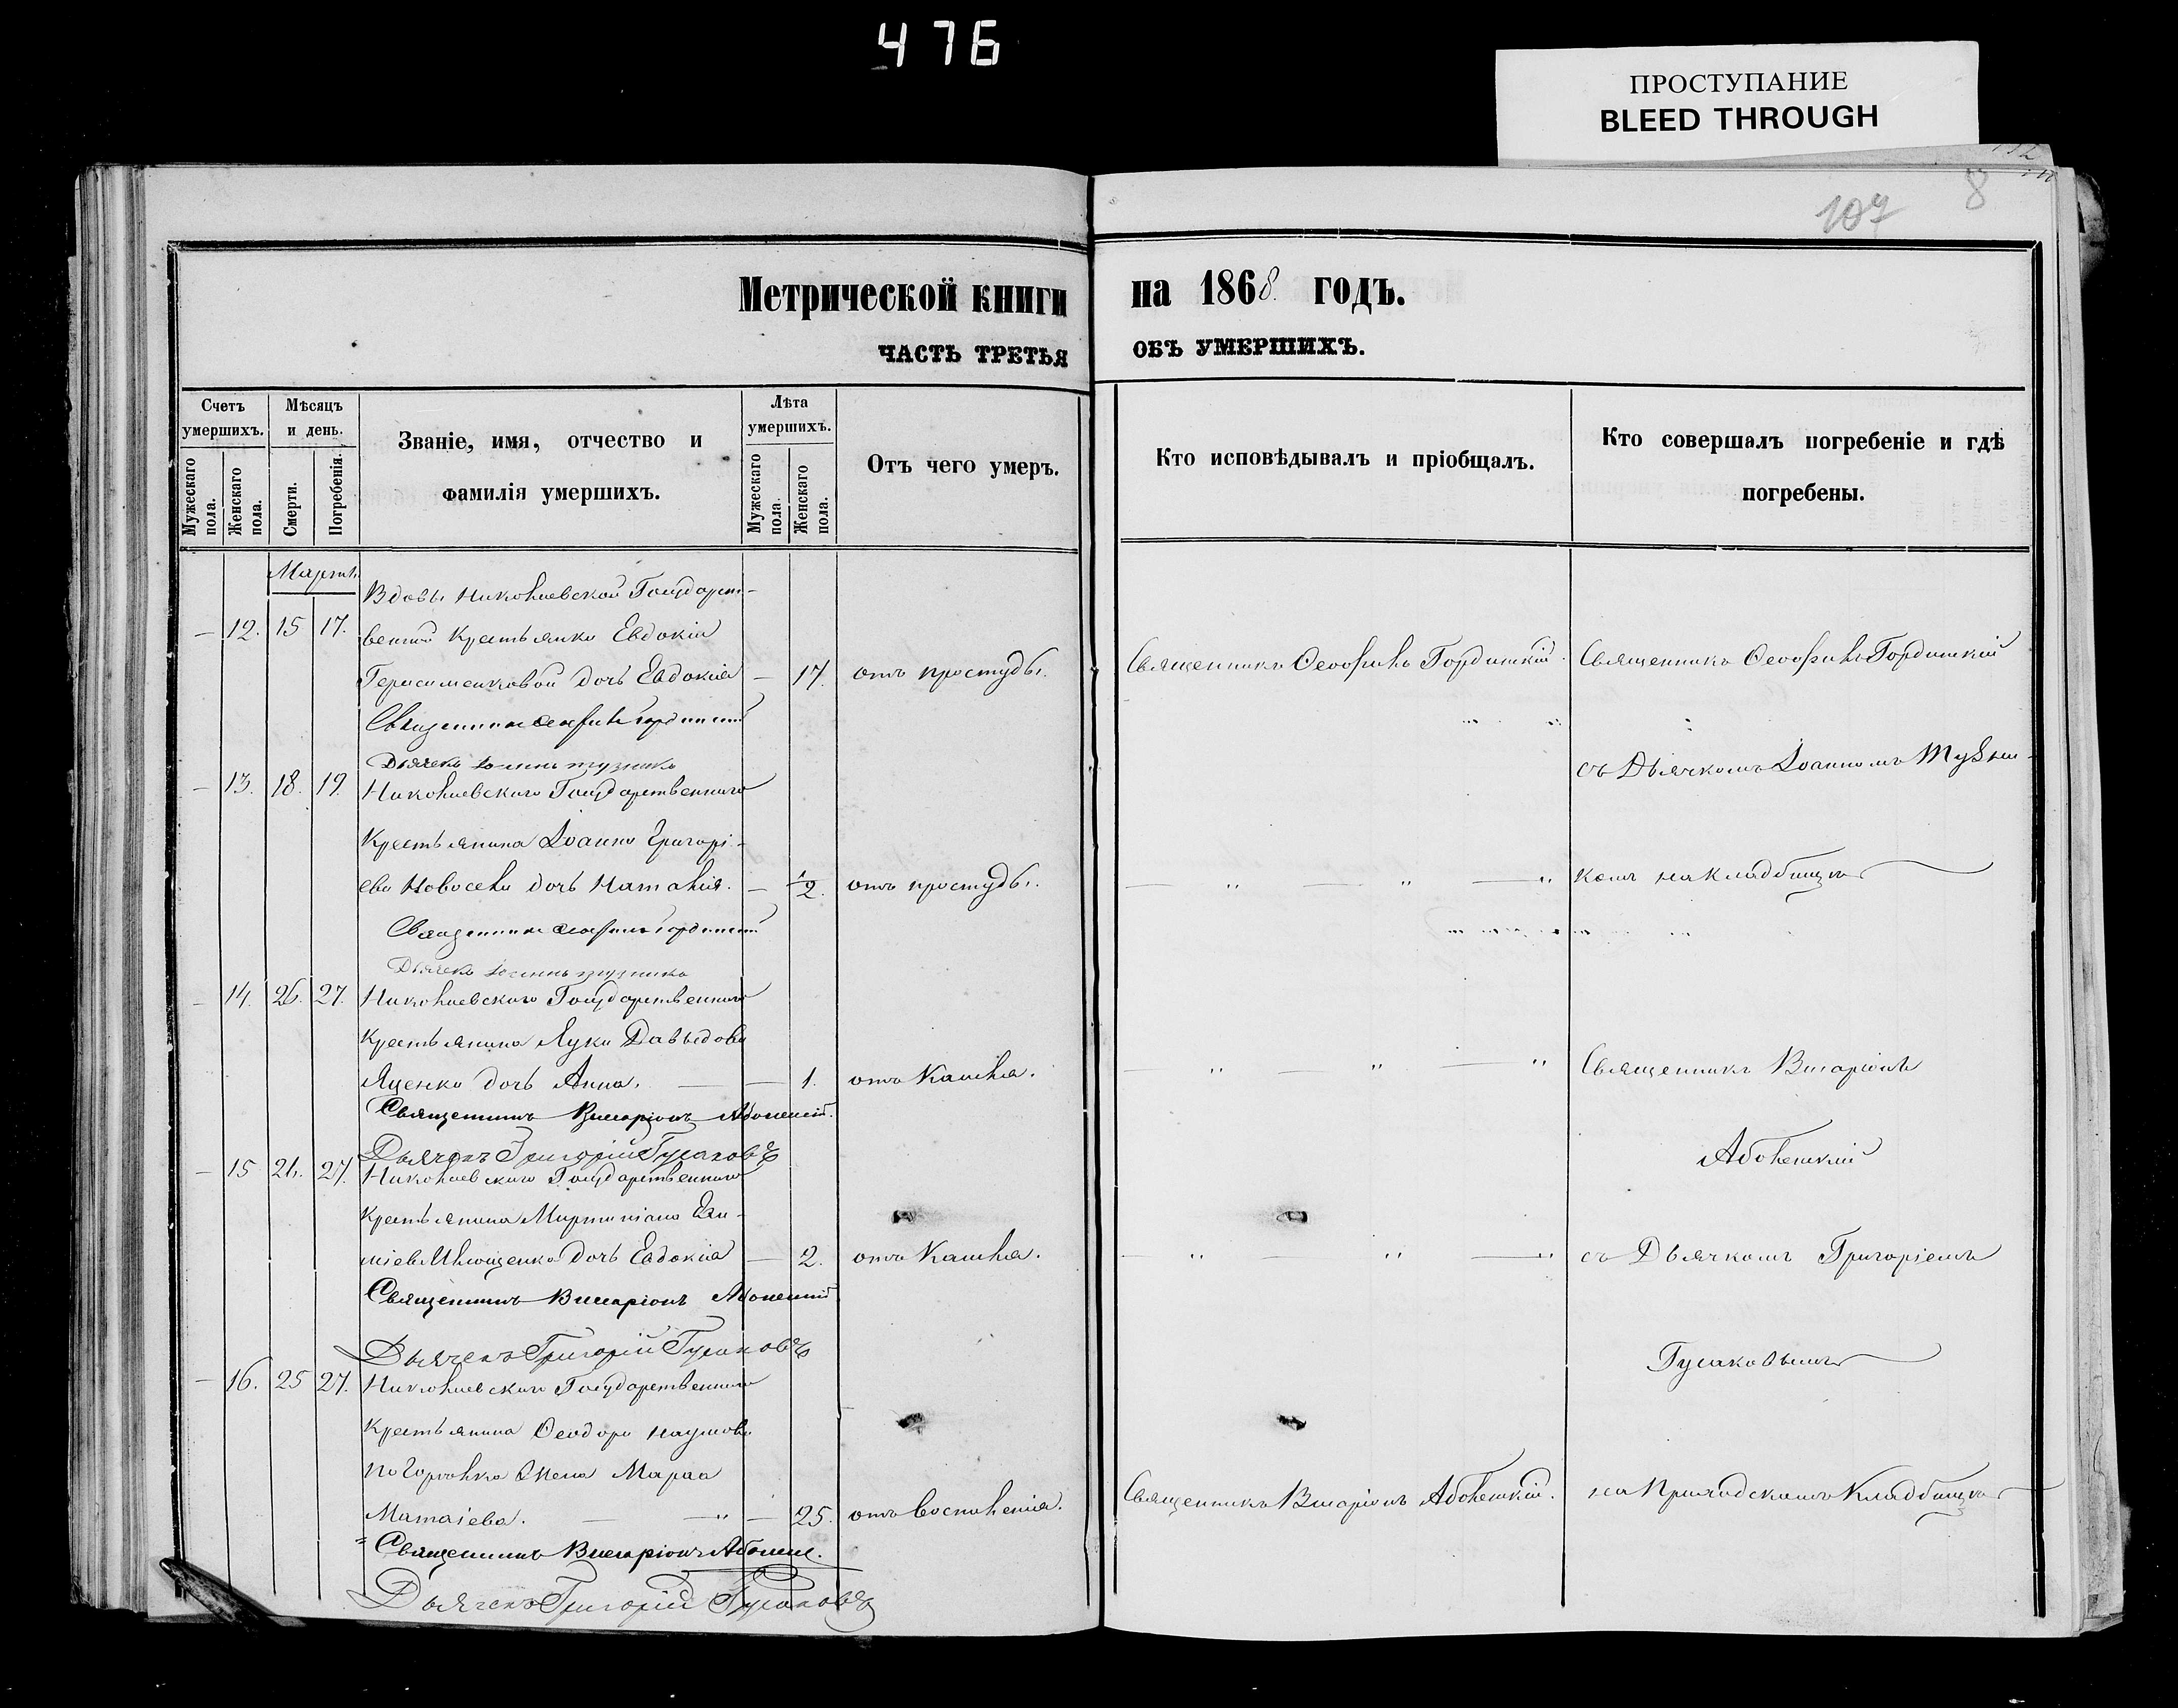 476
ПРОСТУПАНИЕ
BLEED THROUGH
107
8
Метрической книги на 1868 годъ.
ЧАСТЬ ТРЕТЬЯ ОБЪ УМЕРШИХЪ.
Счетъ умершихъ.
Мѣсяцъ и день.
Званіе, имя, отчество и фамилія умершихъ.
Лѣта умершихъ.
Отъ чего умеръ.
Кто исповѣдывалъ и пріобщалъ.
Кто совершалъ погребеніе и гдѣ погребены.
Мужескаго пола.
Женскаго пола.
Смерти.
Погребенія.
Мужескаго пола.
Женскаго пола.
Мартъ
Вдовы Николаевской Государст-
— 12. 15 17. венной Крестьянки Евдокіи
Герасименковой дочь Евдокія — 17. отъ простуды. Священникъ Ѳеофилъ Гордицкій. Священникъ Ѳеофилъ Гордицкій
Священникъ Ѳеофилъ
Дьячекъ
съ Дьячкомъ Іоанномъ
— 13. 18. 19. Николаевскаго Государственнаго
Крестьянина Іоанна Григорі-
ева Новосела дочь Наталія. — 1/2. отъ простуды. — " — " — " комъ на кладбищѣ
Священникъ Ѳеофилъ
Дьячекъ
— 14. 26. 27. Николаевскаго Государственнаго
Крестьянина Луки Давыдова
Яценка дочь Анна. — — 1. отъ Кашля. — " — " — " Священникъ Висаріонъ
Священникъ Висаріонъ
Дьячекъ Григорій Гусаковъ
Аболенскій
— 15 27. Николаевскаго Государственнаго
Крестьянина Мартиніана
дочь Евдокія — 2. отъ Кашля. — " — " — " съ Дьячкомъ Григоріемъ
Священникъ Висаріонъ
Дьячекъ Григорій Гусаковъ
Гусаковымъ
— 16. 25 27. Николаевскаго Государственнаго
Крестьянина Ѳеодора Наумова
жена
— " — 25. отъ воспаленія. Священникъ Висаріонъ Аболенскій. на Приходскомъ Кладбищѣ
Священникъ Висаріонъ
Дьячекъ Григорій Гусаковъ